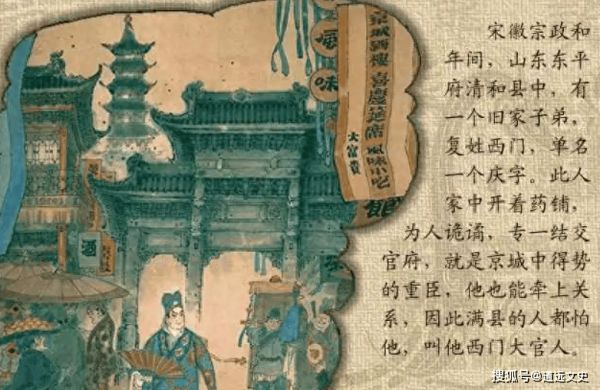 宋徽宗政和
年间，山东东平
府清和县中，有
一个旧家子弟，
复姓西门，单名
一个庆字。此人
家中开着药铺，
为人诡谲，专一结交
官府，就是京城中得势
的重臣，他也能牵上关
系，因此满县的人都怕
他，叫他西门大官人。
風味
喜慶筵席
風味小吃
大富貴
酒
搜狐号@道远文史